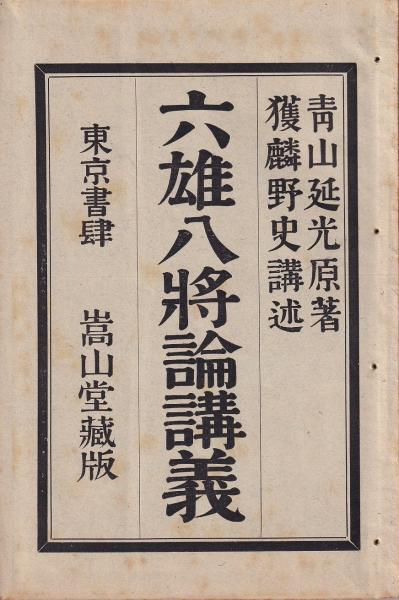 靑山延光原著
獲麟野史講述
六雄八將論講義
東京書肆 嵩山堂藏版